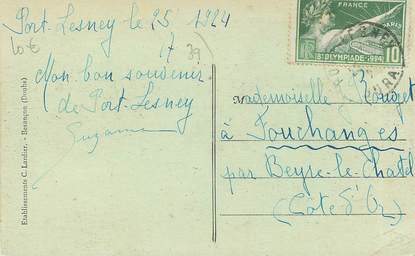 Port-Lesney le 25 1924
10€
17
39
Mon bon souvenir
de Port-Lesney
Suzanne
Etablissements C. Lardier. - Besançon (Doubs)
FRANCE
PARIS
8E OLYMPIADE - 1924
10
JURA
Mademoiselle J. Rouget
à Fouchanges
par Beyre-le-Chatel
(Côte d'Or)